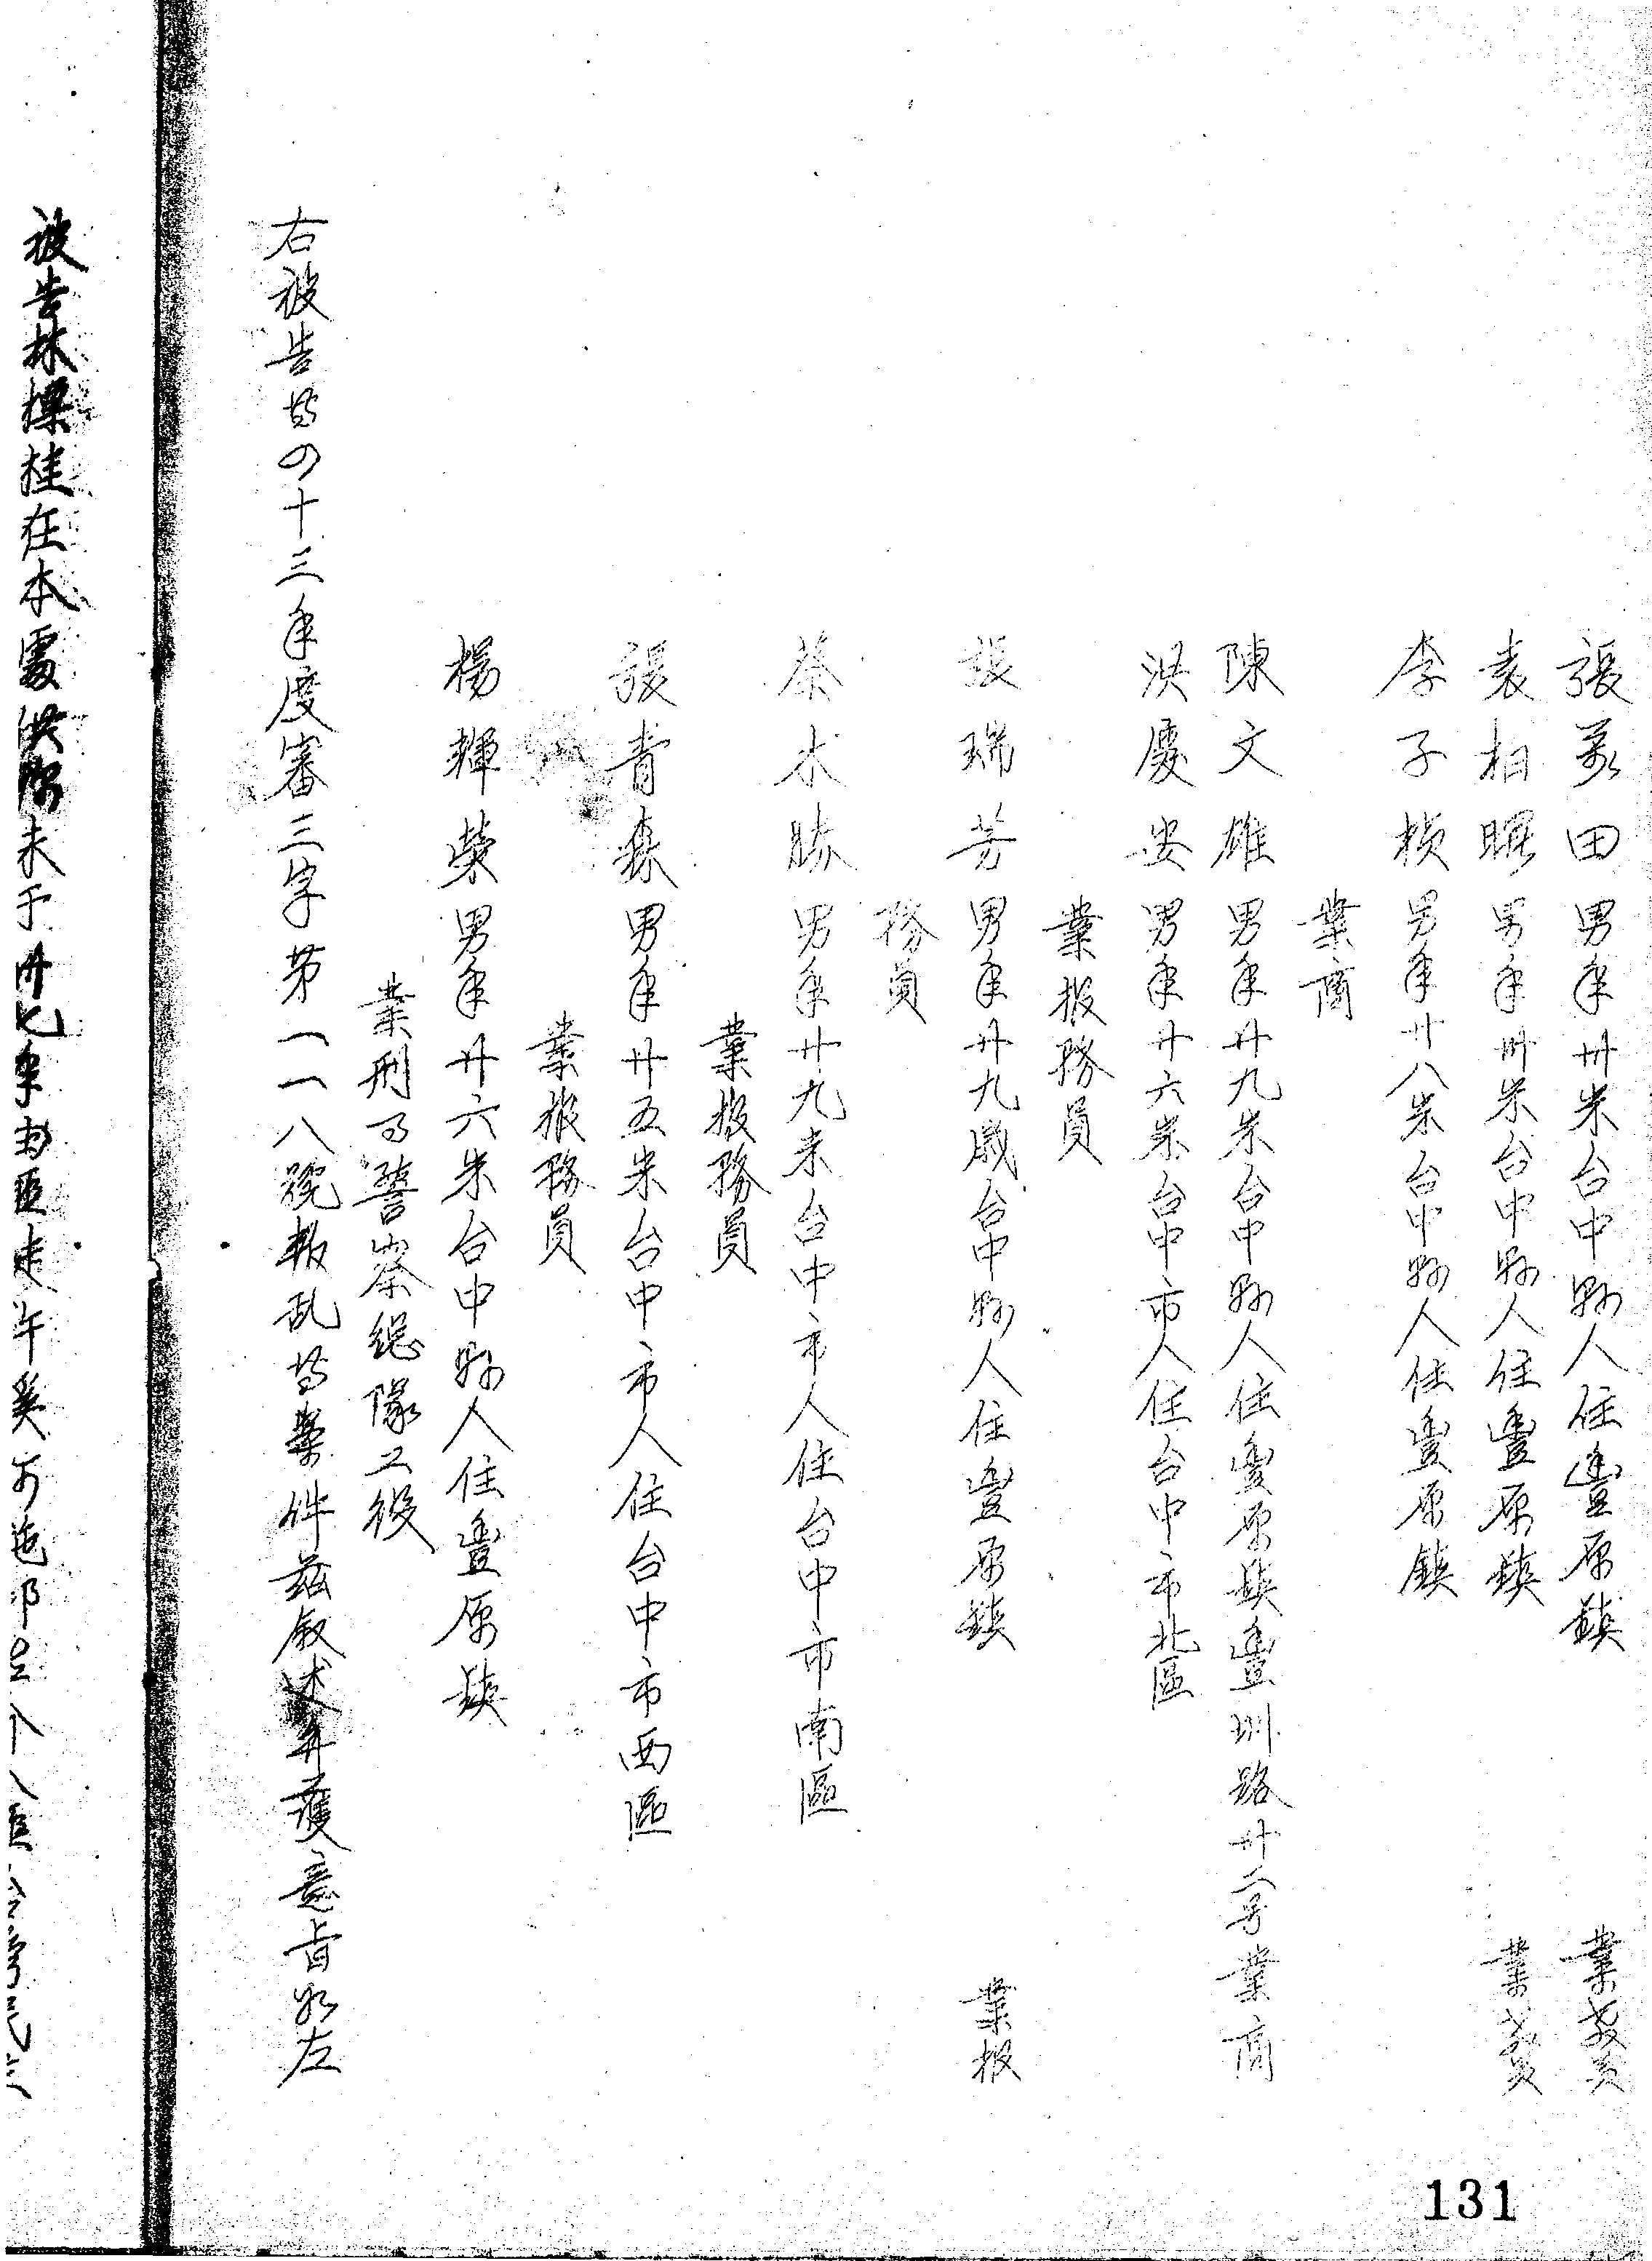 張萬田男年卅岁台中縣人住豐原鎮 業教員
袁相暇男年卅岁台中縣人住豐原鎮 業教員
李子楨男年廿八岁台中縣人住豐原鎮
業商
陳文雄男年廿九岁台中縣人住豐原鎮豐圳路廿二号業商
洪慶安男年廿六岁台中市人住台中市北區
業报務員
張瑞芳男年廿九歲台中縣人住豐原鎮 業报
務員
蔡木勝男年廿九岁台中市人住台中市南區
業报務員
張青森男年廿五岁台中市人住台中市西區
業报務員
楊輝榮男年廿六岁台中縣人住豐原鎮
業刑事警察總隊工役
右被告等四十三年度審三字第一一一八號叛乱等案件茲叙述弁護意旨如左
被告林樑桂在本處供际未于卅七年
131